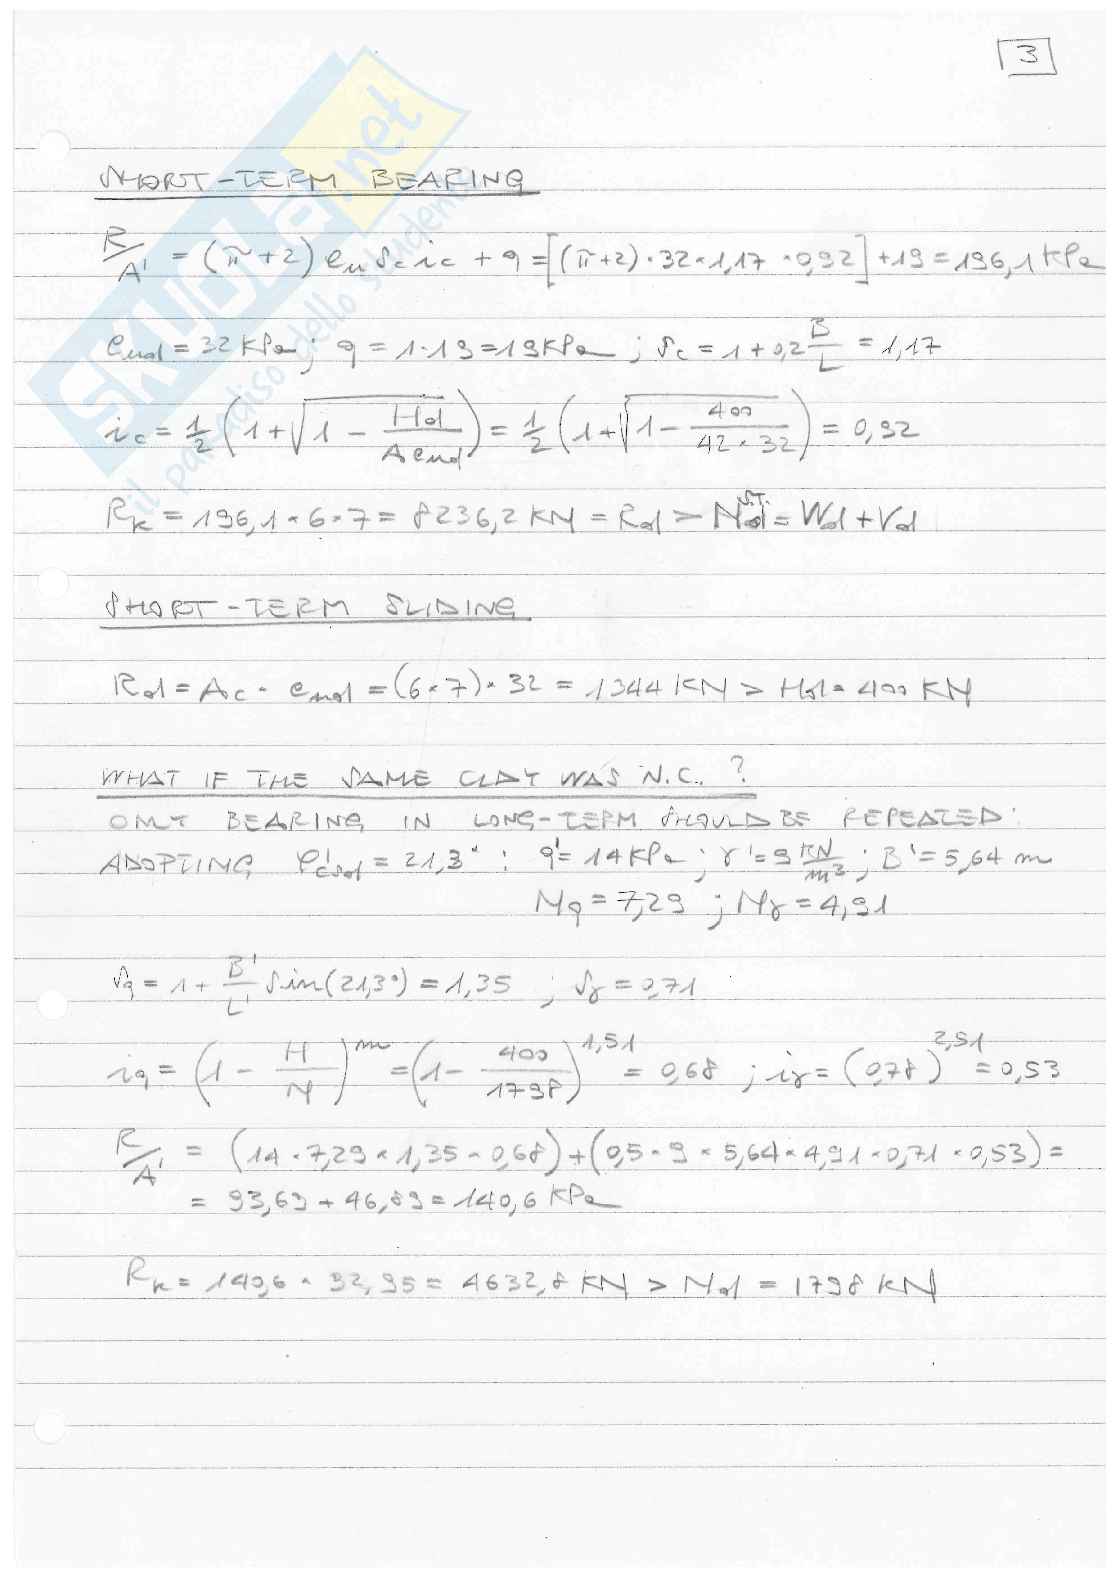 3
SHORT-TERM BEARING
R/A' = (π+2) cu sc ic + q = [(π+2)·32·1,17·0,92] + 19 = 196,1 kPa
cud = 32 kPa ; q = 1·19 = 19 kPa ; sc = 1 + 0,2 B/L = 1,17
ic = 1/2 (1+√(1 - Hd/(A cud))) = 1/2 (1+√(1 - 400/(42·32))) = 0,92
Rk = 196,1·6·7 = 8236,2 KN = Rd > Nd S.T. = Wd + Vd
SHORT-TERM SLIDING
Rd = Ac · cud = (6·7)·32 = 1344 KN > Hd = 400 KN
WHAT IF THE SAME CLAY WAS N.C. ?
ONLY BEARING IN LONG-TERM SHOULD BE REPEATED:
ADOPTING φ'csd = 21,3° : q' = 14 kPa ; γ' = 9 KN/m³ ; B' = 5,64 m
Nq = 7,29 ; Nγ = 4,91
sq = 1 + B'/L' sin(21,3°) = 1,35 ; sγ = 0,71
iq = (1 - H/N)^m = (1 - 400/1798)^1,51 = 0,68 ; iγ = (0,78)^2,51 = 0,53
R/A' = (14·7,29·1,35·0,68) + (0,5·9·5,64·4,91·0,71·0,53) =
= 93,69 + 46,89 = 140,6 kPa
Rk = 140,6 · 32,95 = 4632,8 KN > Nd = 1798 KN
SKUOLA.net
il paradiso dello studente